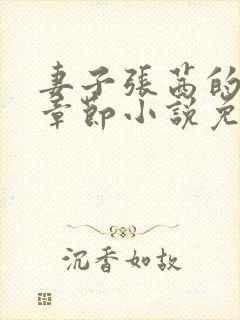 妻子張茜的
章節小說免
沉香如故